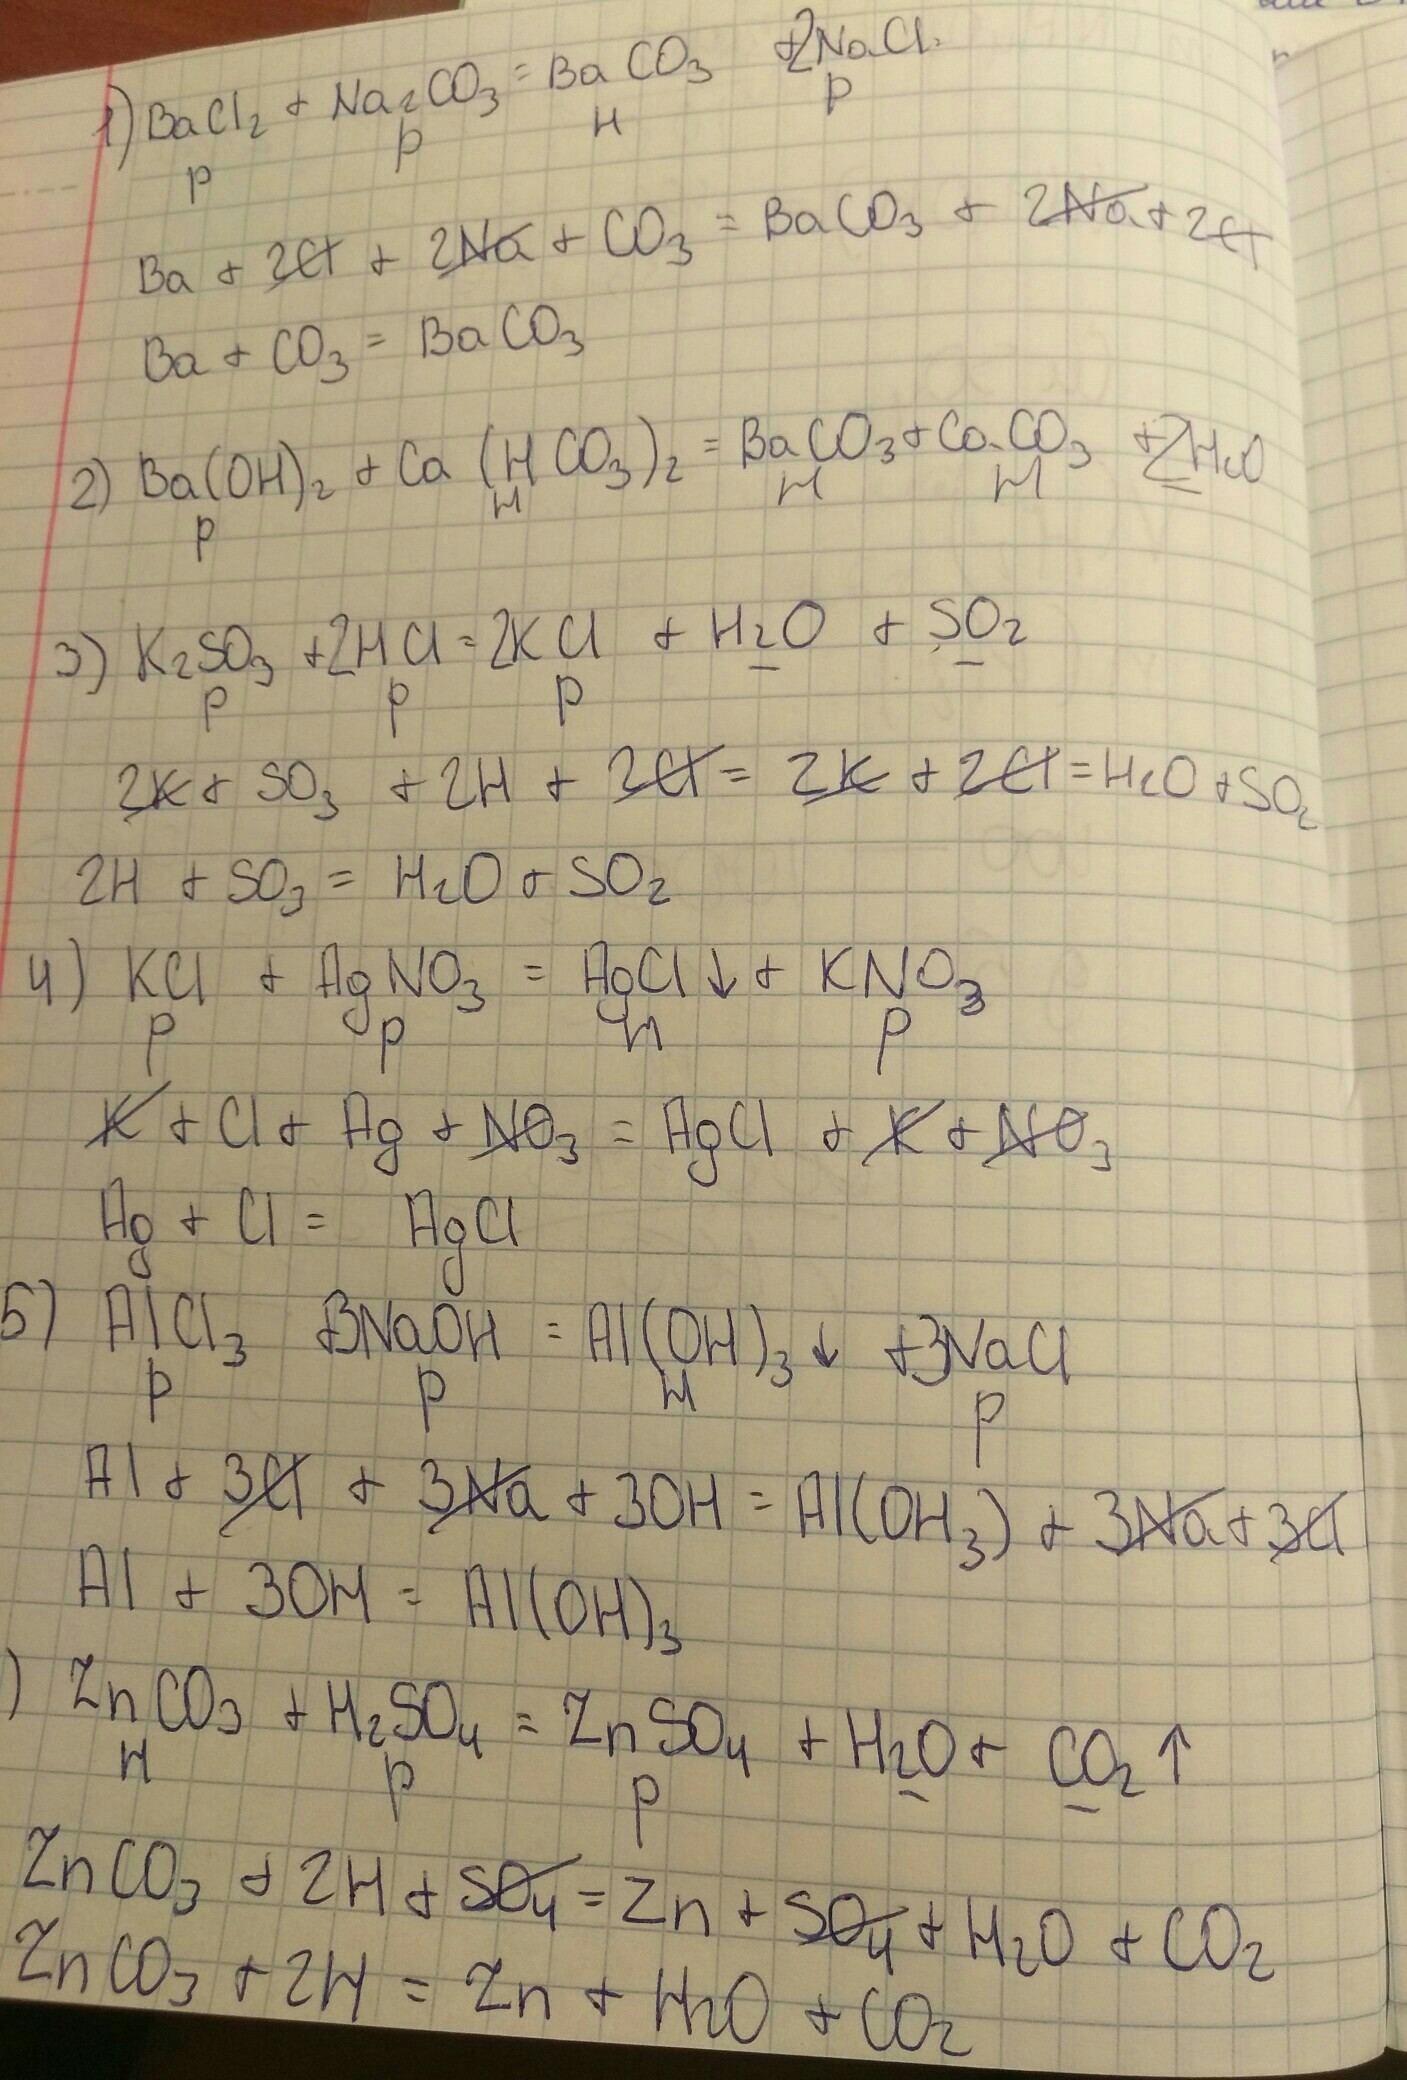 1) BaCl2 + Na2CO3 = BaCO3 +2NaCl
р р н р
Ba + 2Cl + 2Na + CO3 = BaCO3 + 2Na + 2Cl
Ba + CO3 = BaCO3
2) Ba(OH)2 + Ca(HCO3)2 = BaCO3 + CaCO3 + 2H2O
р н н н
3) K2SO3 + 2HCl = 2KCl + H2O + SO2
р р р
2K + SO3 + 2H + 2Cl = 2K + 2Cl = H2O + SO2
2H + SO3 = H2O + SO2
4) KCl + AgNO3 = AgCl↓ + KNO3
р р н р
K + Cl + Ag + NO3 = AgCl + K + NO3
Ag + Cl = AgCl
5) AlCl3 + 3NaOH = Al(OH)3↓ + 3NaCl
р р н р
Al + 3Cl + 3Na + 3OH = Al(OH3) + 3Na + 3Cl
Al + 3OH = Al(OH)3
) ZnCO3 + H2SO4 = ZnSO4 + H2O + CO2↑
н р р
ZnCO3 + 2H + SO4 = Zn + SO4 + H2O + CO2
ZnCO3 + 2H = Zn + H2O + CO2